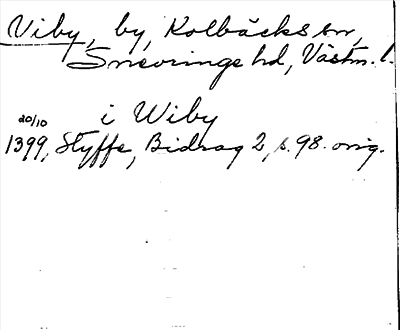 Viby, by, Kolbäcks sn,
Snevringe hd, Västm. l.
i Wiby
20/10
1399, Styffe, Bidrag 2, s. 98. orig.